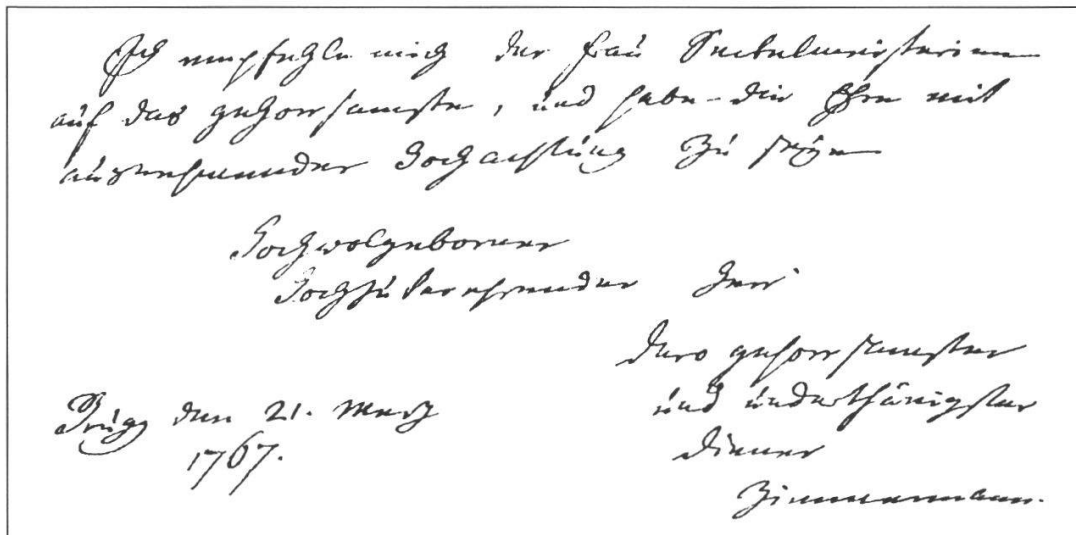 Ich empfehle mich der Frau Seckelmeisterinn
auf das gehorsamste, und habe die Ehre mit
ausnehmender Hochachtung zu seyn
Hochwolgeborner
Hochzuverehrender Herr
dero gehorsamster
und underthänigster
Diener
Zimmermann.
Brugg den 21. Merz
1767.